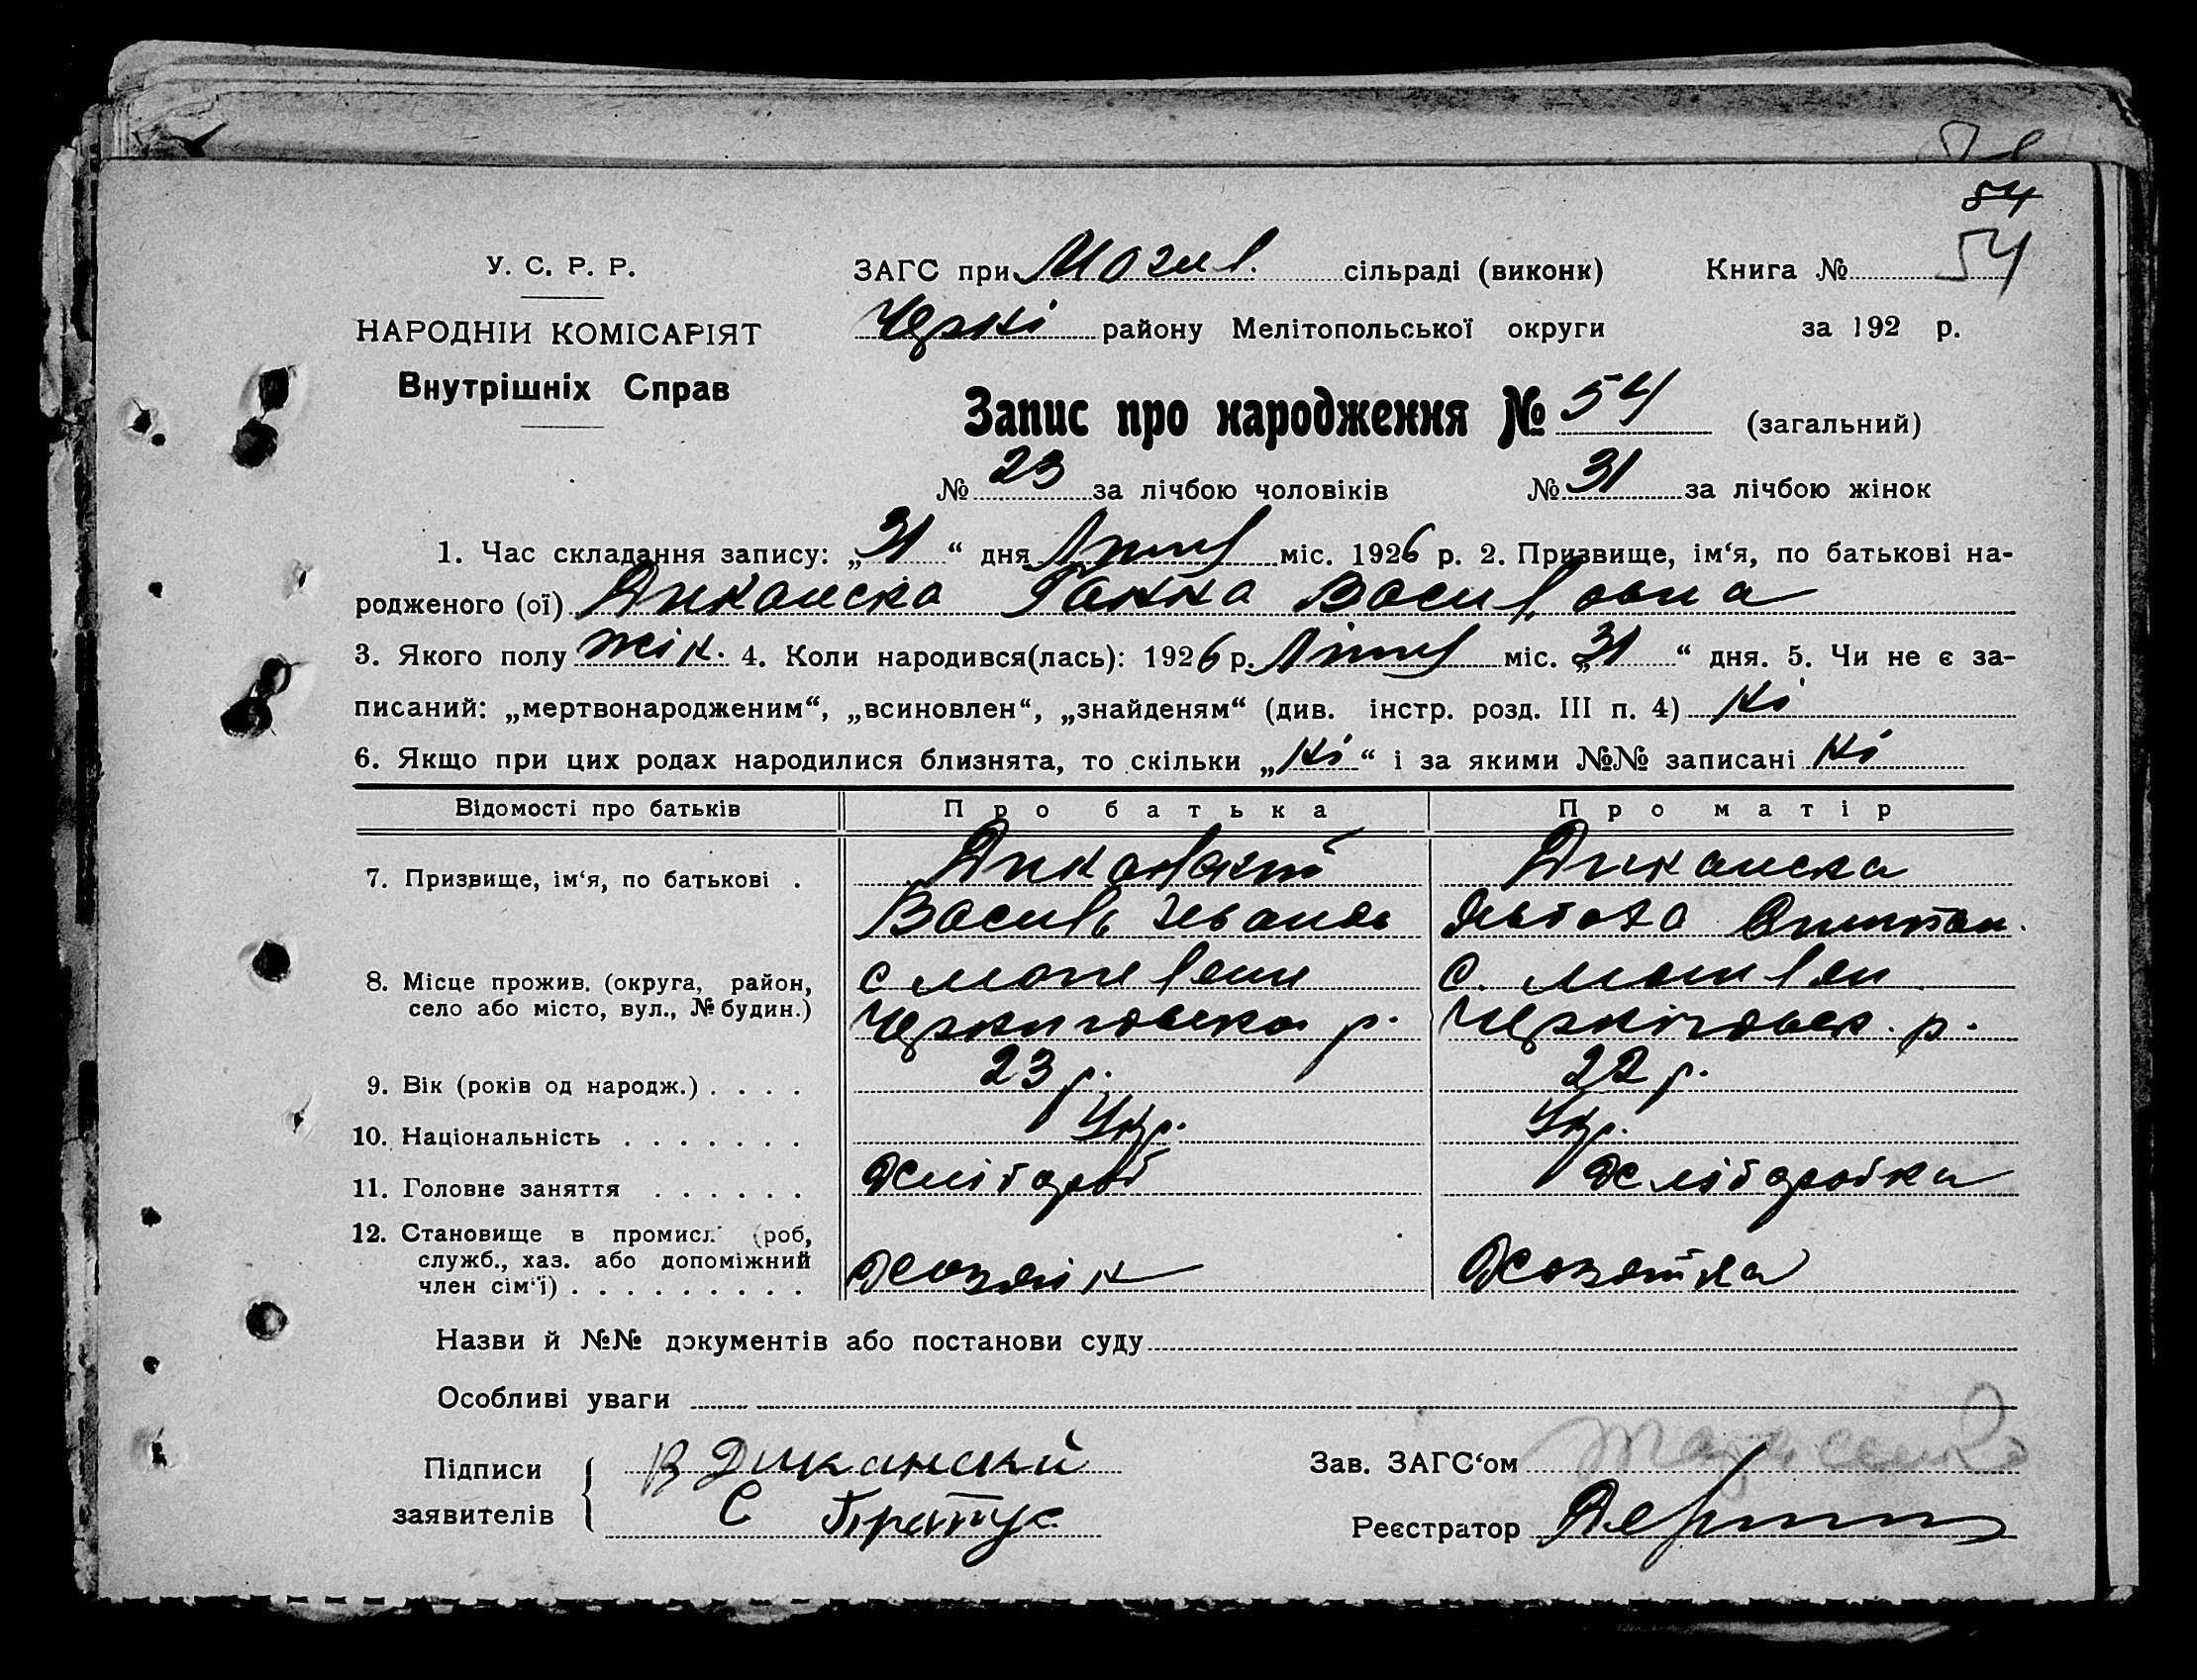 54
54
У. С. Р. Р.
ЗАГС при Могил. сільраді (виконк)
Книга №
НАРОДНІЙ КОМІСАРІЯТ
району Мелітопольської округи
за 192 р.
Внутрішніх Справ
Запис про народження № 54 (загальний)
№ 23 за лічбою чоловіків № 31 за лічбою жінок
1. Час складання запису: „31“ дня міс. 1926 р. 2. Призвище, ім‘я, по батькові на-
родженого (ої) Диканска Ганна Василовна
3. Якого полу жін. 4. Коли народився(лась): 1926 р. міс. „31“ дня. 5. Чи не є за-
писаний: „мертвонародженим“, „всиновлен“, „знайденям“ (див. інстр. розд. III п. 4) Ні
6. Якщо при цих родах народилися близнята, то скільки „Ні“ і за якими №№ записані Ні
Відомості про батьків Про батька Про матір
7. Призвище, ім‘я, по батькові . Диканский Диканска
Василь Іванов
8. Місце прожив. (округа, район, с с.
село або місто, вул., № будин.) р. р.
9. Вік (років од народж.) . . . . 23 р. 22 р.
10. Національність . . . . . . . Укр. Укр.
11. Головне заняття . . . . . . Хлібороб Хліборобка
12. Становище в промисл. (роб,
служб., хаз. або допоміжний
член сім‘ї) . . . . . . . . . Хозяїн Хозяйка
Назви й №№ документів або постанови суду
Особливі уваги
Підписи В Диканский
заявителів С Братус
Зав. ЗАГС‘ом
Реєстратор